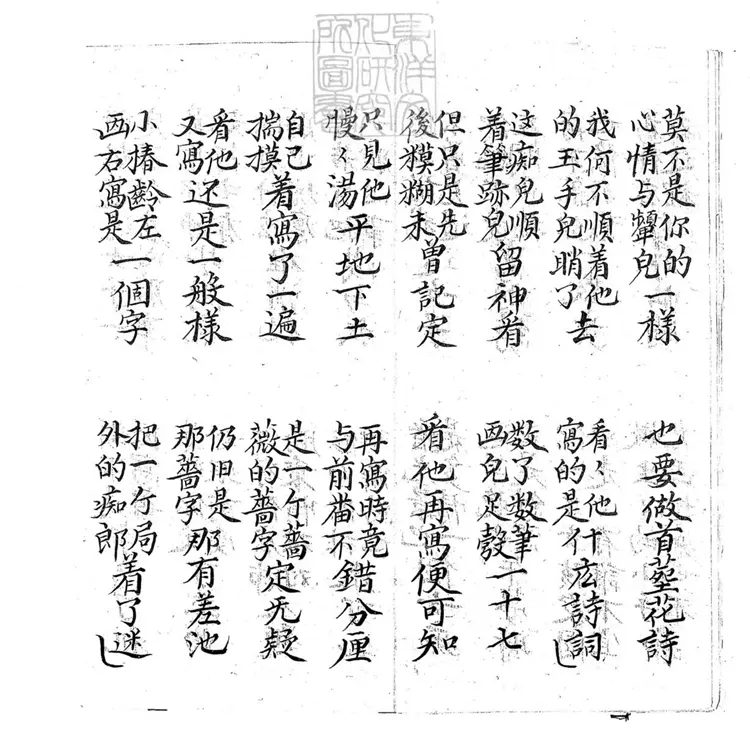 東洋文
化研究
所圖書
莫不是你的
心情与颦兒一樣
也要做首塟花詩
我何不順着他
的玉手兒睄了去
看〻他
寫的是什広詩詞
这痴兒順
着筆跡兒留神看
数了数筆
画兒足彀一十七
但只是先
後糢糊未曽記定
看他再寫便可知
只見他
慢〻湯平地下土
再寫時竟
与前畨不錯分厘
自己
揣摸着寫了一遍
是一个薔
薇的薔字定无疑
看他
又寫还是一般樣
仍旧是
那薔字那有差池
小椿齡左
画右寫是一個字
把一个局
外的痴郎着了迷